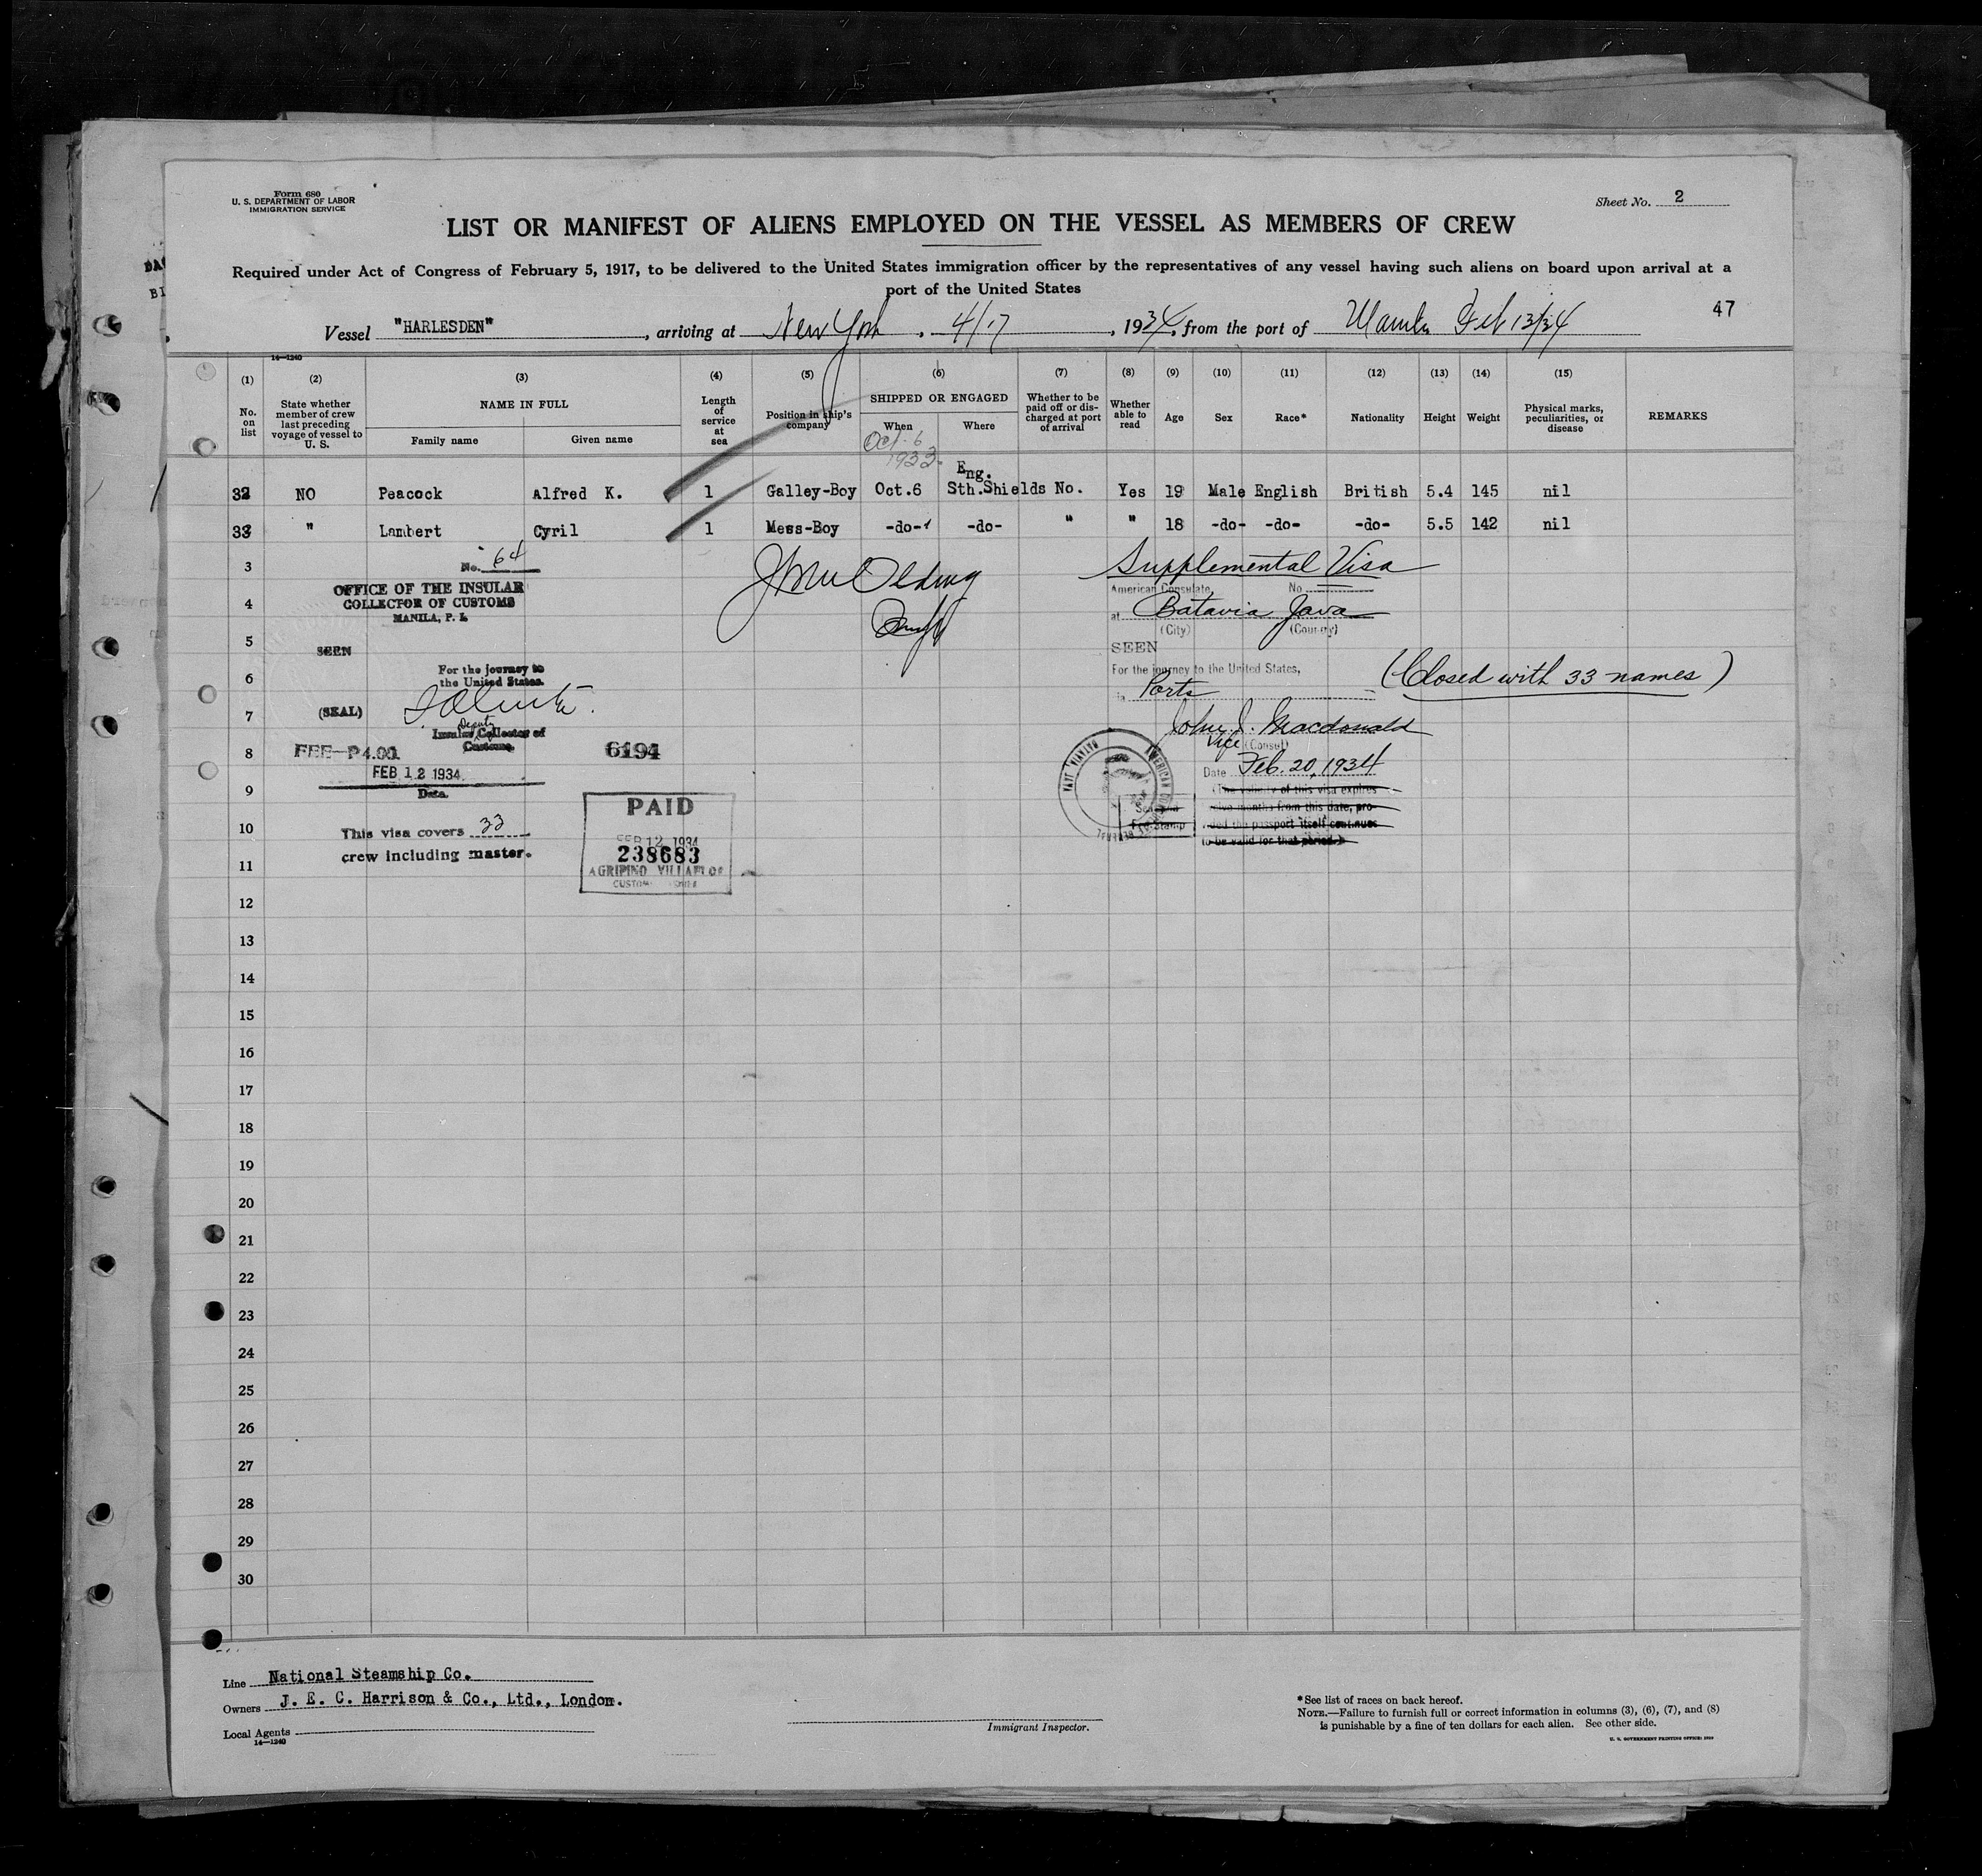 Form 680
U. S. DEPARTMENT OF LABOR
IMMIGRATION SERVICE
Sheet No. 2
LIST OR MANIFEST OF ALIENS EMPLOYED ON THE VESSEL AS MEMBERS OF CREW
Required under Act of Congress of February 5, 1917, to be delivered to the United States immigration officer by the representatives of any vessel having such aliens on board upon arrival at a
port of the United States
47
Vessel "HARLESDEN", arriving at New York, 4/17, 1934, from the port of Manila Feb 13/34
14—1240
(1) (2) (3) (4) (5) (6) (7) (8) (9) (10) (11) (12) (13) (14) (15)
No. on list
State whether member of crew last preceding voyage of vessel to U. S.
NAME IN FULL
Family name
Given name
Length of service at sea
Position in ship's company
SHIPPED OR ENGAGED
When
Where
Whether to be paid off or discharged at port of arrival
Whether able to read
Age
Sex
Race*
Nationality
Height
Weight
Physical marks, peculiarities, or disease
REMARKS
Oct. 6
1933.
Eng.
32 NO Peacock Alfred K. 1 Galley-Boy Oct.6 Sth.Shields No. Yes 19 Male English British 5.4 145 nil
33 " Lambert Cyril 1 Mess-Boy -do- -do- " " 18 -do- -do- -do- 5.5 142 nil
3
4
5
6
7
8
9
10
11
12
13
14
15
16
17
18
19
20
21
22
23
24
25
26
27
28
29
30
No. 64
OFFICE OF THE INSULAR
COLLECTOR OF CUSTOMS
MANILA, P. I.
SEEN
For the journey to
the United States.
(SEAL)
Deputy
Insular Collector of
Customs.
FEE—P4.00
6194
FEB 12 1934
Date.
This visa covers 33
crew including master.
PAID
FEB 12 1934
238683
AGRIPINO VILLAFLOR
Supplemental Visa
American Consulate No
at Batavia Java
(City) (Country)
SEEN
For the journey to the United States,
Ports
(Closed with 33 names)
John J. Macdonald
Vice (Consul)
Date Feb. 20, 1934
(The validity of this visa expires
months from this date, pro-
vided the passport itself continues
to be valid for that period.)
Fee Stamp
AMERICAN CONSULATE GENERAL
BATAVIA JAVA
Line National Steamship Co.
Owners J. E. C. Harrison & Co., Ltd., London.
Local Agents
14—1240
Immigrant Inspector.
*See list of races on back hereof.
NOTE.—Failure to furnish full or correct information in columns (3), (6), (7), and (8)
is punishable by a fine of ten dollars for each alien. See other side.
U. S. GOVERNMENT PRINTING OFFICE